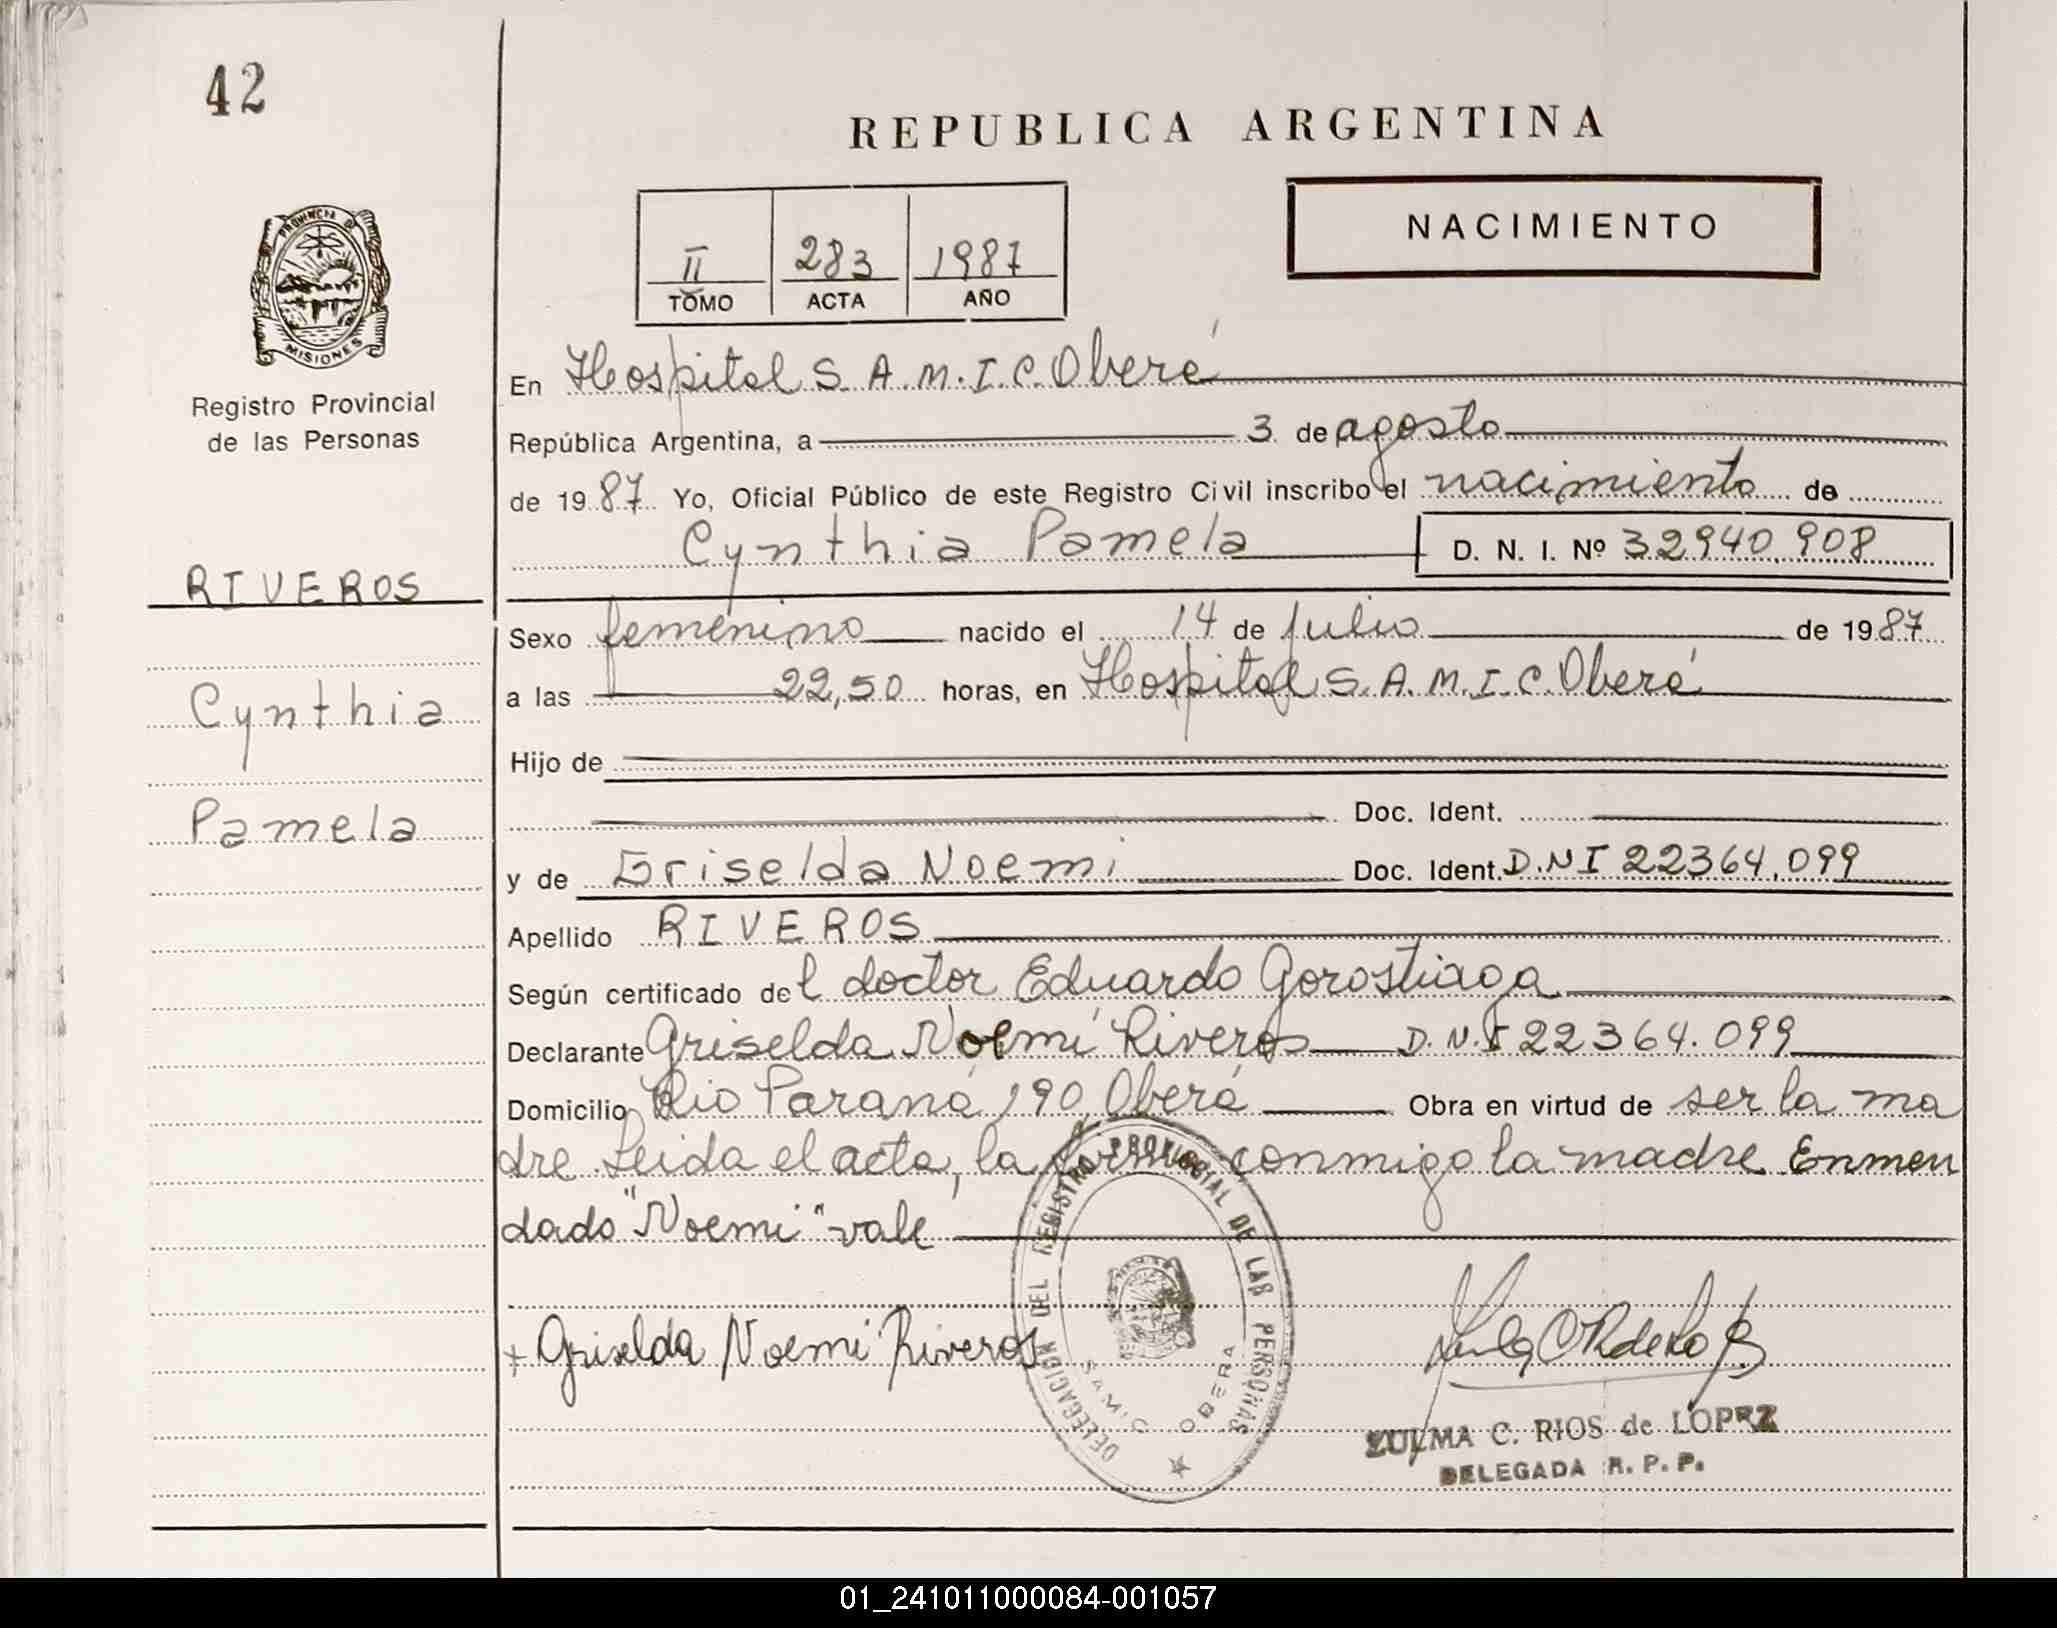 42
REPUBLICA ARGENTINA
NACIMIENTO
II 283 1987
TOMO ACTA AÑO
PROVINCIA DE
MISIONES
Registro Provincial
de las Personas
RIVEROS
Cynthia
Pamela
En Hospital S.A.M.I.C. Oberá
República Argentina, a 3 de agosto
de 1987 Yo, Oficial Público de este Registro Civil inscribo el nacimiento de
Cynthia Pamela D. N. I. Nº 32940.908
Sexo femenino nacido el 14 de julio de 1987
a las 22,50 horas, en Hospital S.A.M.I.C. Oberá
Hijo de
Doc. Ident.
y de Griselda Noemi Doc. Ident. D.N I 22364.099
Apellido RIVEROS
Según certificado del doctor Eduardo Gorostiaga
Declarante Griselda Noemí Riveros D.N.I 22364.099
Domicilio Rio Paraná 190, Oberá Obra en virtud de ser la ma
dre Leida el acta, la firma conmigo la madre Enmen
dado "Noemi" vale
+ Griselda Noemí Riveros
DELEGACION DEL REGISTRO PROVINCIAL DE LAS PERSONAS
SAMIC OBERA
ZULMA C. RIOS de LOPEZ
DELEGADA R. P. P.
01_241011000084-001057